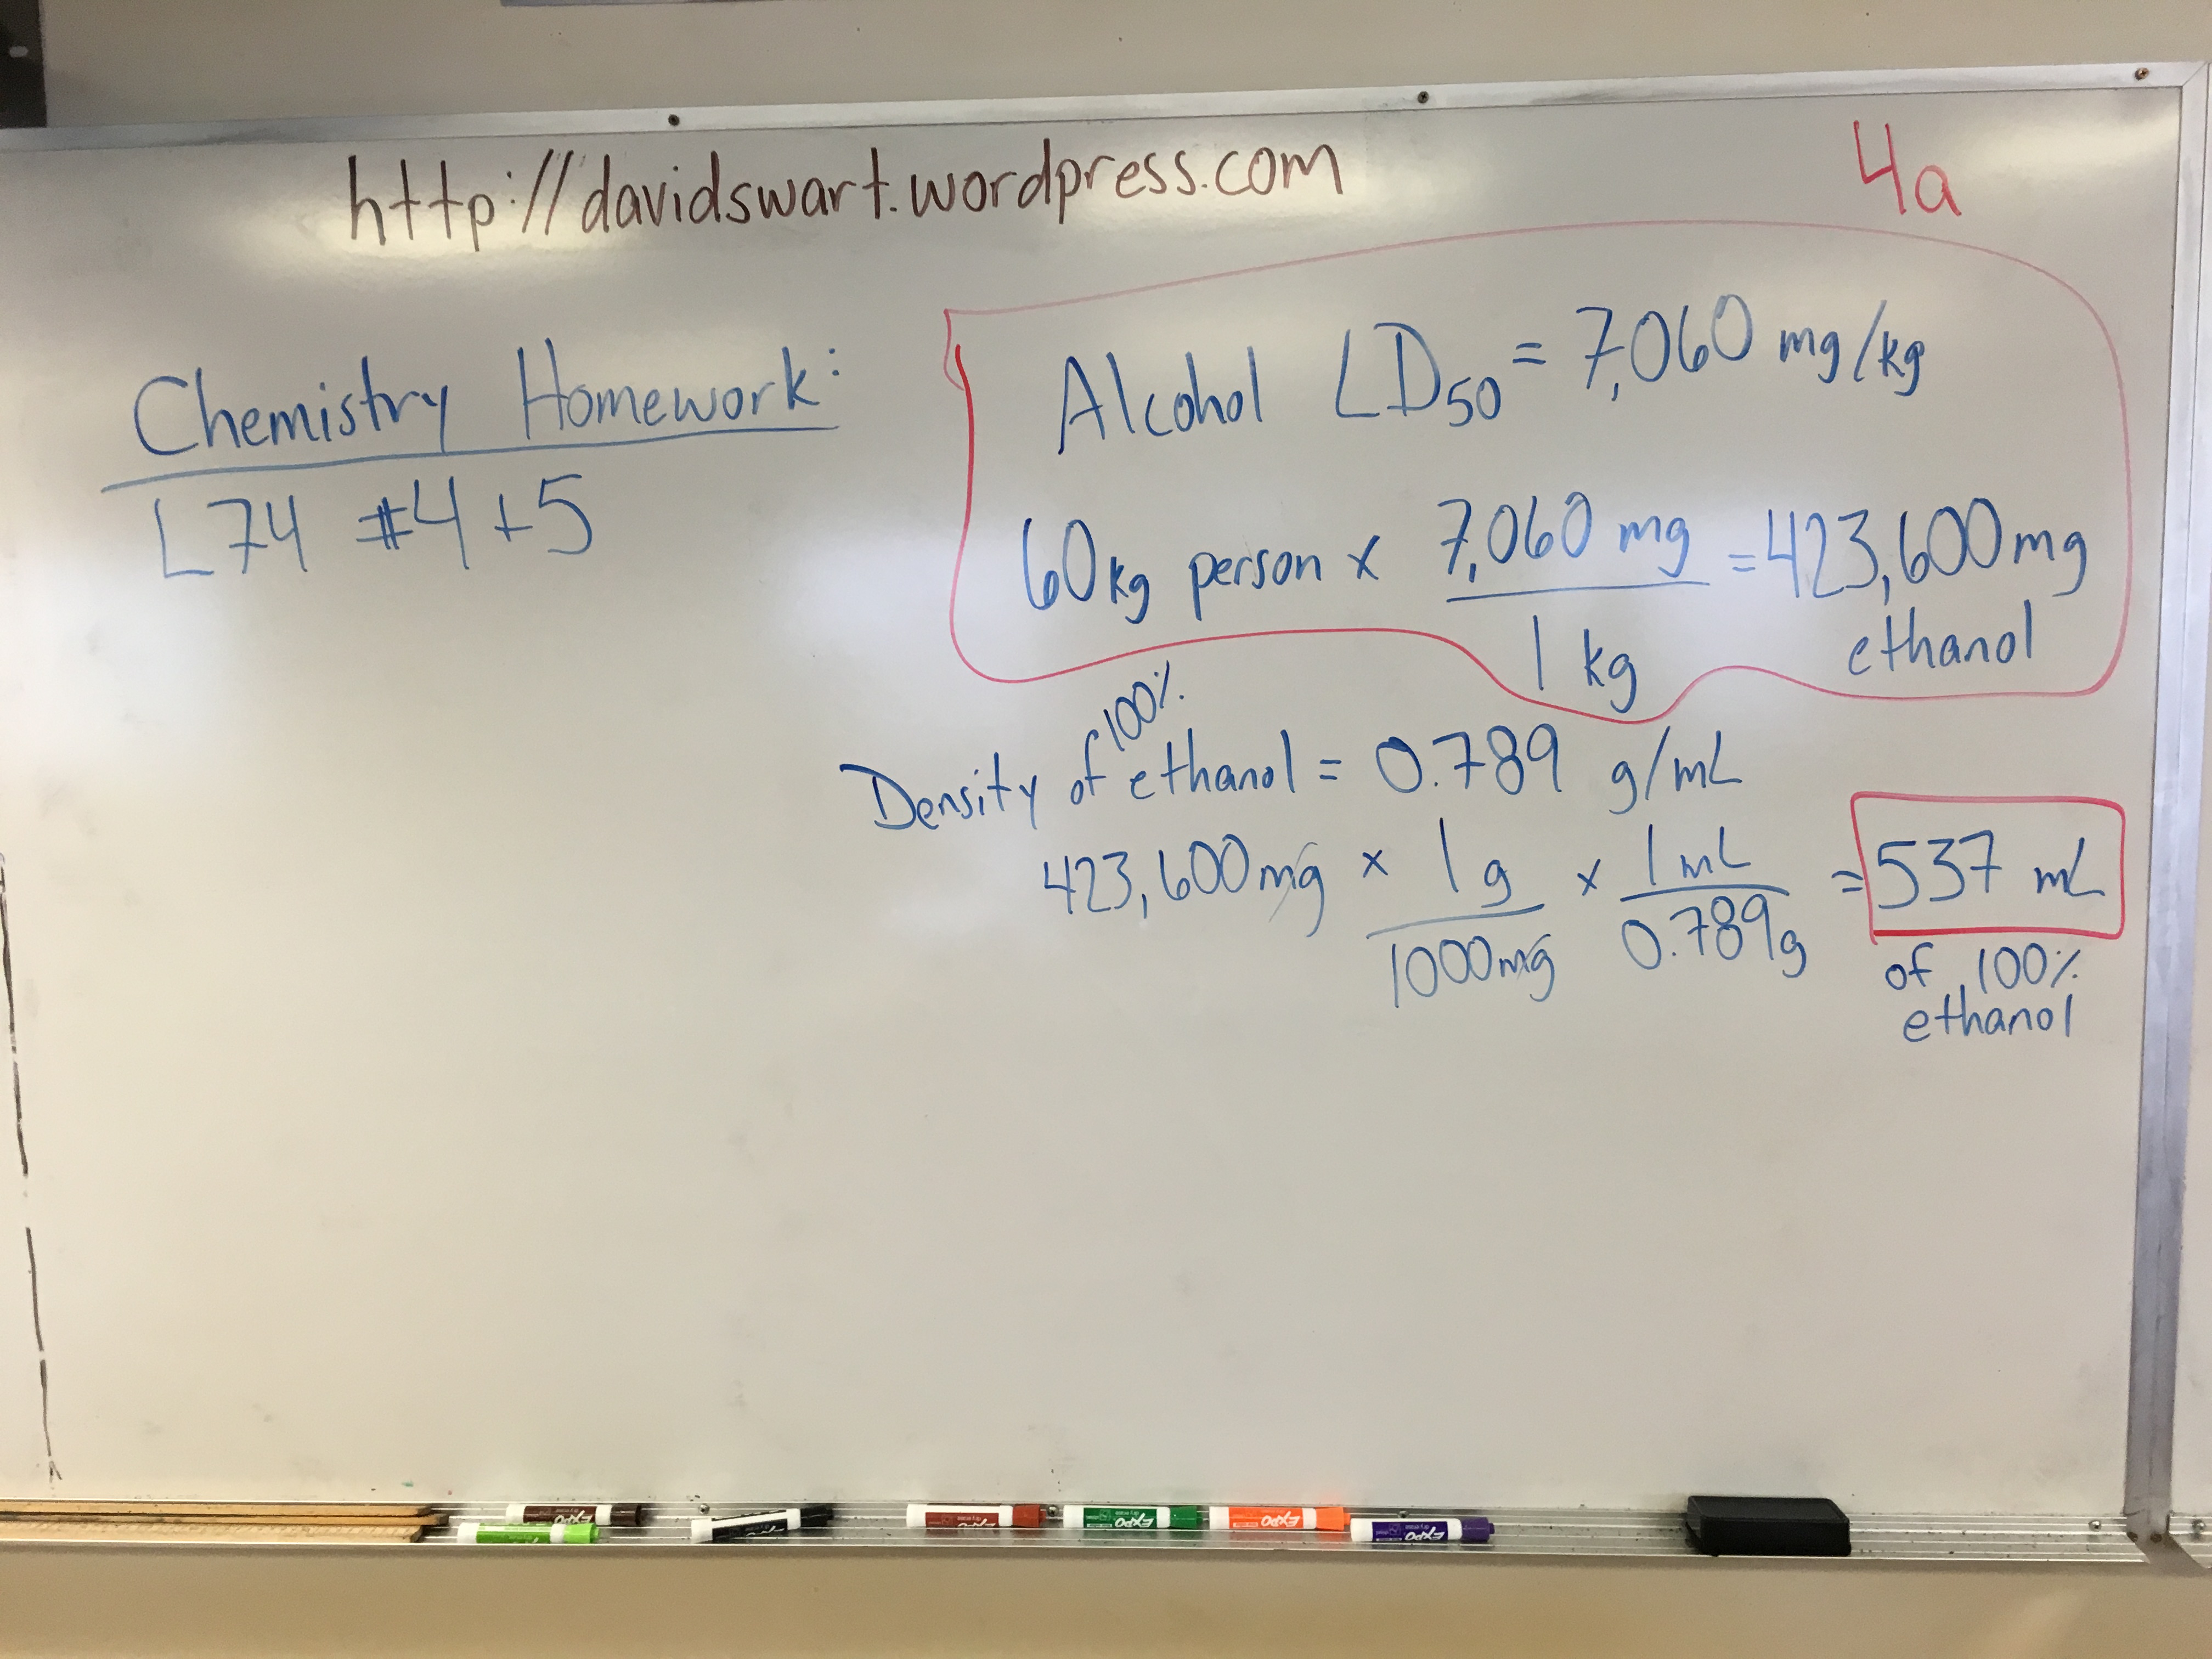 http://davidswart.wordpress.com
4a
Chemistry Homework:
L74 #4+5
Alcohol LD50 = 7,060 mg/kg
60kg person x 7,060 mg / 1 kg = 423,600mg
ethanol
Density of 100% ethanol = 0.789 g/mL
423,600mg x 1g / 1000mg x 1mL / 0.789g = 537 mL
of 100%
ethanol
EXPO
EXPO
EXPO
EXPO
EXPO